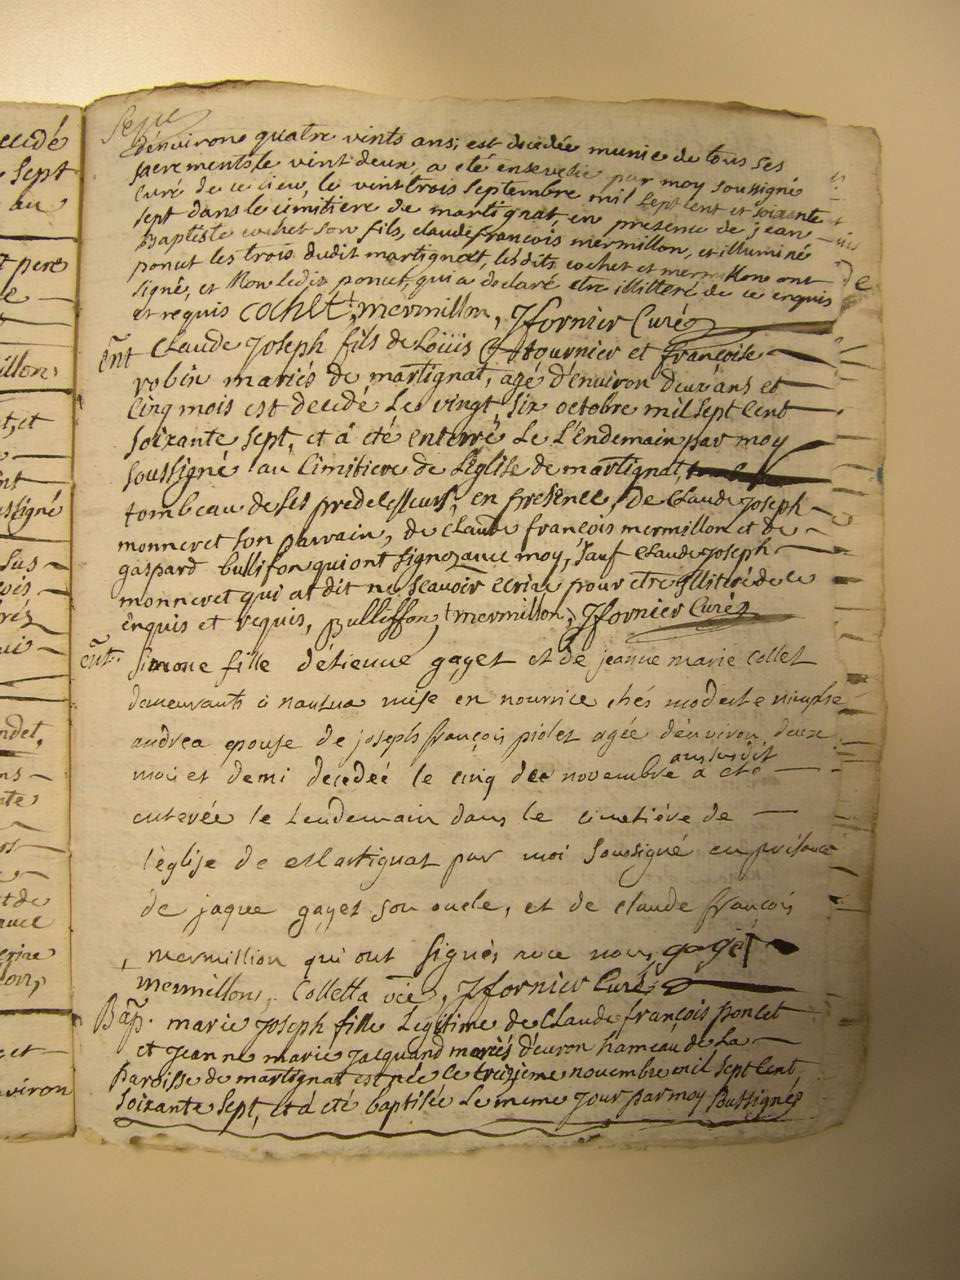 d'environs quatre vints ans; est decedée munie de tous ses
sacrements le vint deux a eté ensevelie par moy soussigné
curé de ce lieu, le vint trois septembre mil sept cent et soixante
sept dans le cimitiere de martignat, en presence de jean
Baptiste cochet son fils, claude françois mermillon, et illuminé
poncet les trois dudit martignat, lesdits cochet et mermillon ont
signé, et Non ledit poncet, qui a declaré etre illiteré de ce enquis
et requis cochet, mermillon, Jfornier Curé
Ent Claude Joseph fils de Loüis tournier et françoise
robin mariés de martignat, agé d'environ deux ans et
cinq mois est decedé Le vingt six octobre mil sept cent
soixante sept, et a eté enterré Le L'endemain par moy
soussigné au Cimitiere de L'eglise de martignat,
tombeau de ses predecesseurs, en presence, de Claude Joseph
monneret son parrain, de claude françois mermillon et de
gaspard bulliffon qui ont signez avec moy, sauf Claude Joseph
monneret qui at dit ne scavoir ecrire pour etre illitéré de ce
enquis et requis, Bulliffon, mermillon, Jfornier Curé
ent. Simone fille d'étienne gayet et de jeanne marie Collet
demeurants à nantua mise en nourrice chés modeste nimphe
andrea epouse de joseph françois piolet agée d'environ deux
mois et demi decedeé le cinq de novembre a eté
enterée le Lendemain dans le cimetiére de
l'église de Martignat par moi soussigné en présence
de jaque gayet son oncle, et de claude françois
mermillion qui ont signés avec nous, gayet
mermillon, Colletta vic, Jfornier Curé
Bap. marie Joseph fille Legitime de Claude françois poncet
et Jeanne marie Jacquand mariés d'evron hameau de La
Paroisse de martignat est née Le treizieme novembre mil sept cent
soixante sept, et a eté baptisée Le meme Jour par moy soussigné